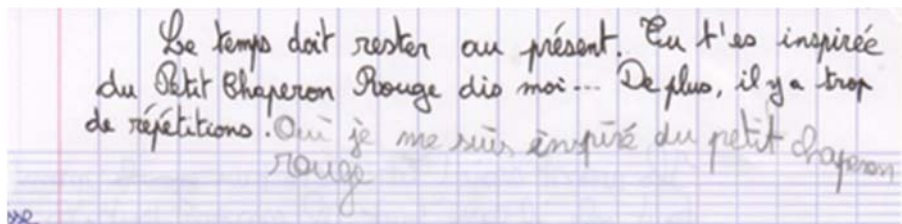 Le temps doit rester au présent. Tu t'es inspirée
du Petit Chaperon Rouge dis moi... De plus, il y a trop
de répétitions. Oui je me suis inpiré du petit chaperon
rouge